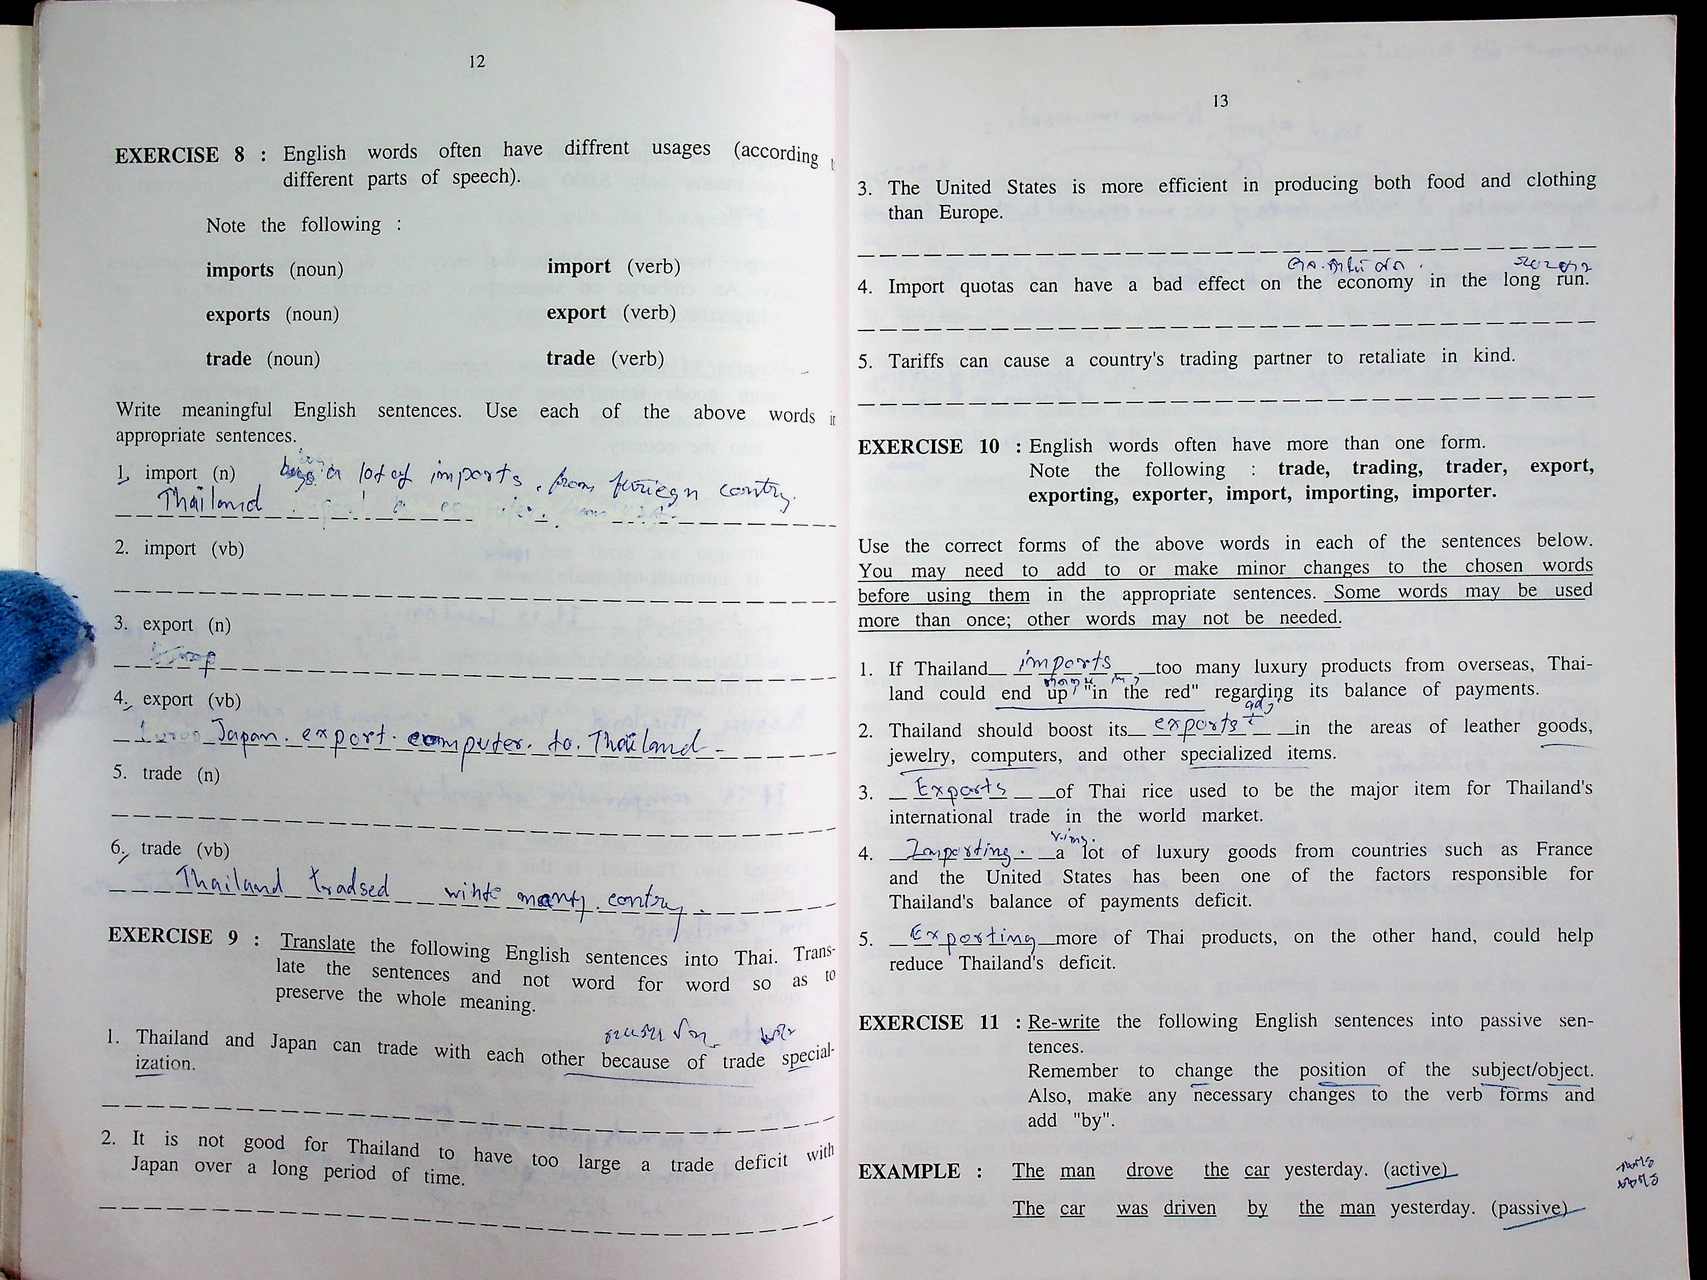 12
EXERCISE 8 : English words often have diffrent usages (according
different parts of speech).
Note the following :
imports (noun) import (verb)
exports (noun) export (verb)
trade (noun) trade (verb)
Write meaningful English sentences. Use each of the above words
appropriate sentences.
1. import (n) a lot of imports from
Thailand
2. import (vb)
3. export (n)
4. export (vb)
Japan export computer to Thailand
5. trade (n)
6. trade (vb)
Thailand
EXERCISE 9 : Translate the following English sentences into Thai. Trans-
late the sentences and not word for word so as to
preserve the whole meaning.
1. Thailand and Japan can trade with each other because of trade special-
ization.
2. It is not good for Thailand to have too large a trade deficit with
Japan over a long period of time.
13
3. The United States is more efficient in producing both food and clothing
than Europe.
4. Import quotas can have a bad effect on the economy in the long run.
5. Tariffs can cause a country's trading partner to retaliate in kind.
EXERCISE 10 : English words often have more than one form.
Note the following : trade, trading, trader, export,
exporting, exporter, import, importing, importer.
Use the correct forms of the above words in each of the sentences below.
You may need to add to or make minor changes to the chosen words
before using them in the appropriate sentences. Some words may be used
more than once; other words may not be needed.
1. If Thailand imports too many luxury products from overseas, Thai-
land could end up "in the red" regarding its balance of payments.
2. Thailand should boost its exports in the areas of leather goods,
jewelry, computers, and other specialized items.
3. Exports of Thai rice used to be the major item for Thailand's
international trade in the world market.
4. Importing a lot of luxury goods from countries such as France
and the United States has been one of the factors responsible for
Thailand's balance of payments deficit.
5. Exporting more of Thai products, on the other hand, could help
reduce Thailand's deficit.
EXERCISE 11 : Re-write the following English sentences into passive sen-
tences.
Remember to change the position of the subject/object.
Also, make any necessary changes to the verb forms and
add "by".
EXAMPLE : The man drove the car yesterday. (active)
The car was driven by the man yesterday. (passive)